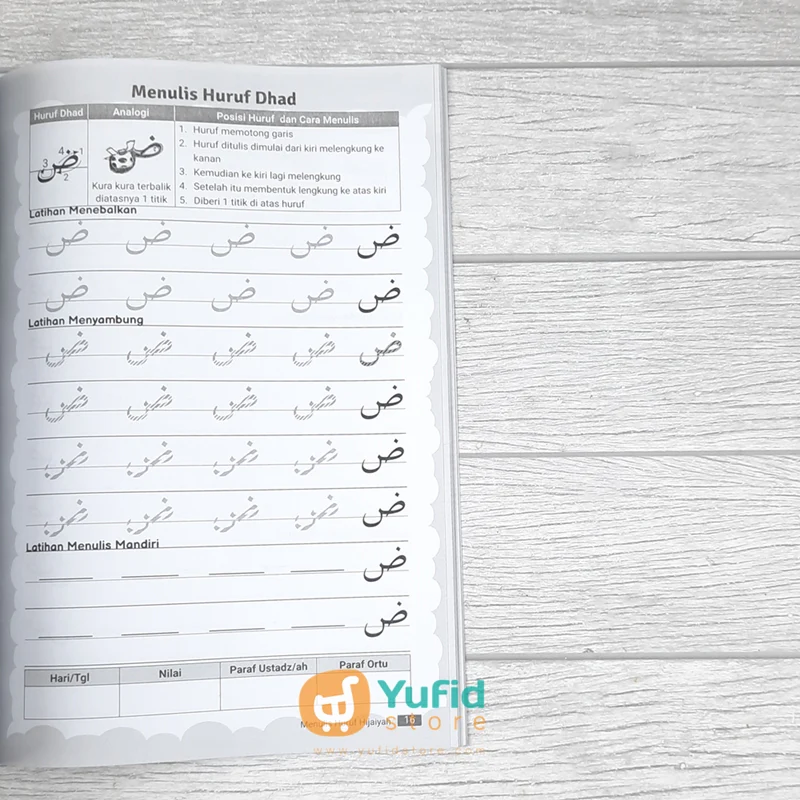 Menulis Huruf Dhad
Huruf Dhad
Analogi
Posisi Huruf dan Cara Menulis
4 1
3 ض
2
ض
Kura kura terbalik
diatasnya 1 titik
1. Huruf memotong garis
2. Huruf ditulis dimulai dari kiri melengkung ke
kanan
3. Kemudian ke kiri lagi melengkung
4. Setelah itu membentuk lengkung ke atas kiri
5. Diberi 1 titik di atas huruf
Latihan Menebalkan
ض ض ض ض ض
ض ض ض ض ض
Latihan Menyambung
ض ض ض ض ض
ض ض ض ض ض
ض ض ض ض ض
ض ض ض ض ض
Latihan Menulis Mandiri
ض
ض
Hari/Tgl
Nilai
Paraf Ustadz/ah
Paraf Ortu
Yufid
store
Hijaiyah 16
www.yufidstore.com